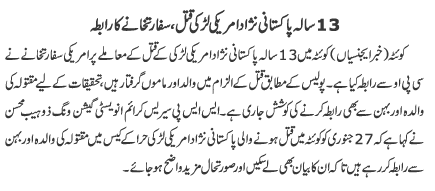 13 سالہ پاکستانی نژاد امریکی لڑکی قتل، سفیر تخانے کا رابطہ
کوئٹہ (خبر ایجنسیاں) کوئٹہ میں 13 سالہ پاکستانی نژاد امریکی لڑکی کے قتل کے معاملے پر امریکی سفارتخانے نے
سی پی او سے رابطہ کیا ہے۔ پولیس کے مطابق قتل کے الزام میں والد اور ماموں گرفتار ہیں، تحقیقات کے لیے مقتولہ کی
والدہ اور بہن سے بھی رابطہ کرنے کی کوشش جاری ہے۔ ایس ایس پی سیریس کرائم انویسٹی گیشن ونگ ذوہیب محسن
نے کہا ہے کہ 27 جنوری کو کوئٹہ میں قتل ہونے والی پاکستانی نژاد امریکی لڑکی حرا کے کیس میں مقتولہ کی والدہ اور بہن
سے رابطہ کر رہے ہیں تاکہ ان کا بیان بھی لے سکیں اور صورتحال مزید واضح ہو جائے۔